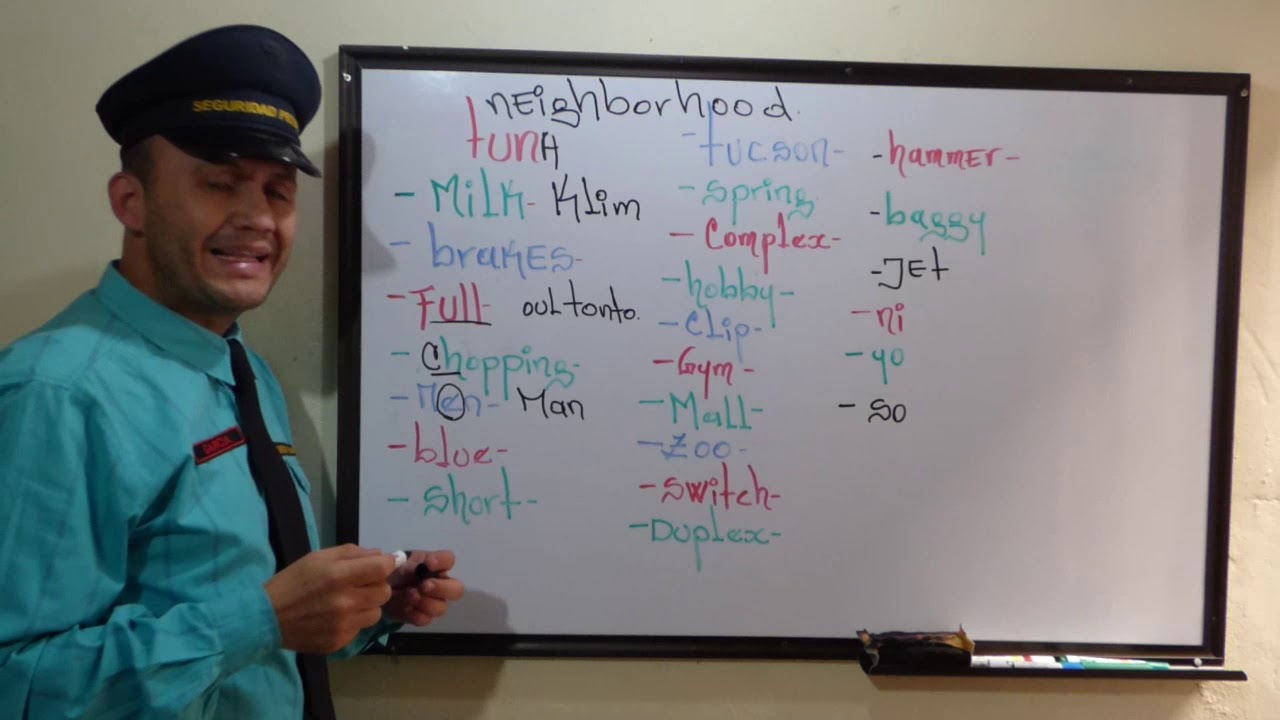 SEGURIDAD
PANDA
neighborhood.
tuna
- Milk - Klim
- brakes -
- Full - oul tonto.
- Chopping -
- Men - Man
- blue -
- short -
- tucson -
- spring
- Complex -
- hobby -
- Clip -
- Gym -
- Mall -
- Zoo -
- switch -
- Duplex -
- hammer -
- baggy
- Jet
- ni
- yo
- so